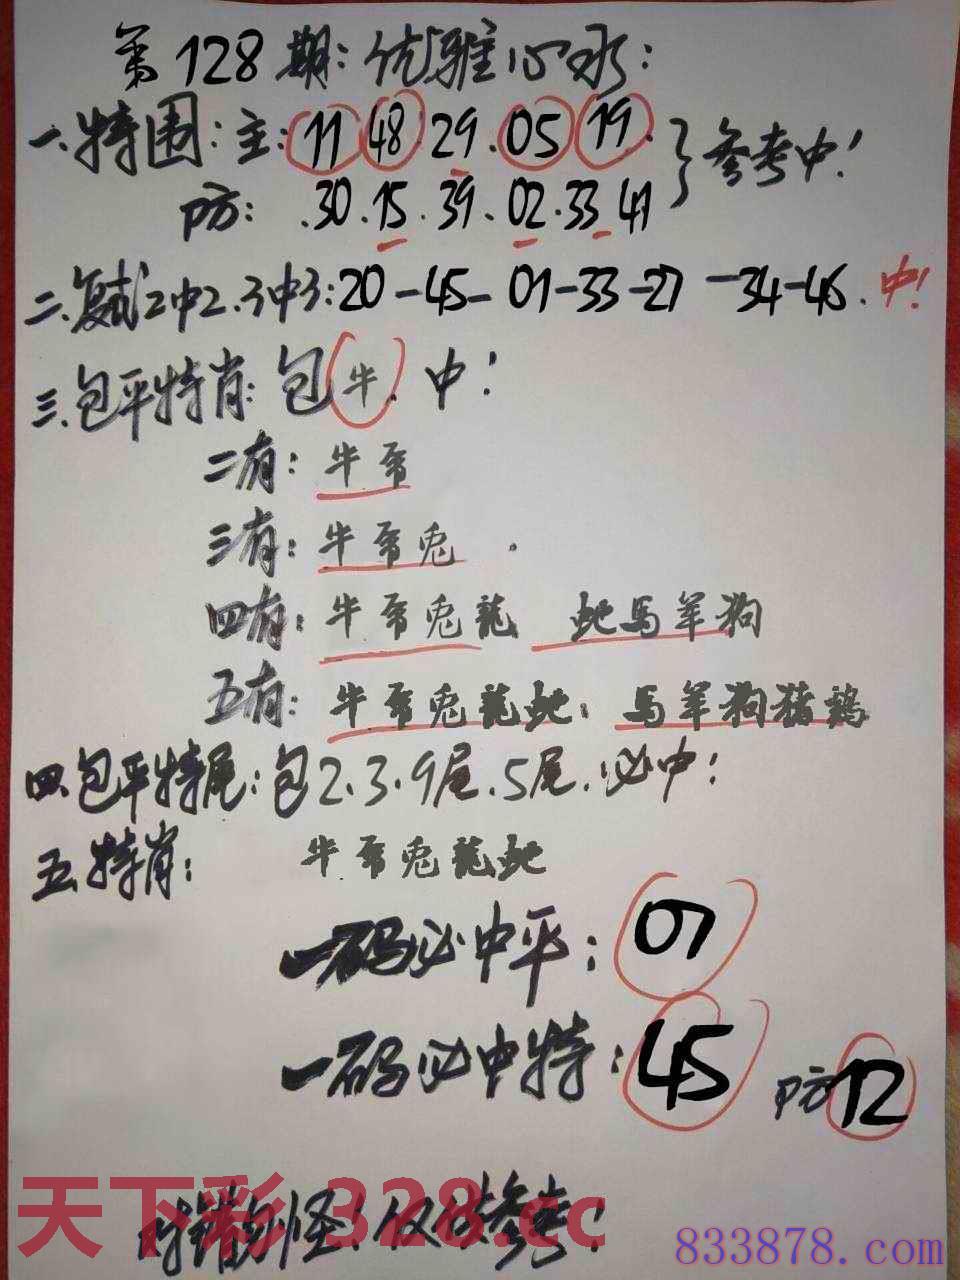 第128期:优雅心水:
一.特围:主:11 48 29.05 19. }参考中!
防: .30.15.39.02.33 41
二.复试2中2.3中3:20-45-01-33-27-34-46.中!
三.包平特肖:包牛.中!
二有:牛
三有:牛 兔.
四有:牛 兔龍 蛇馬羊狗
五有:牛 兔龍蛇: 馬羊狗猪鷄
四.包平特尾:包2.3.9尾.5尾.必中!
五.特肖: 牛 兔龍蛇
一码必中平:
一码必中特:45 防12
错 怪!仅供参考!
天下彩 328.cc
833878.com